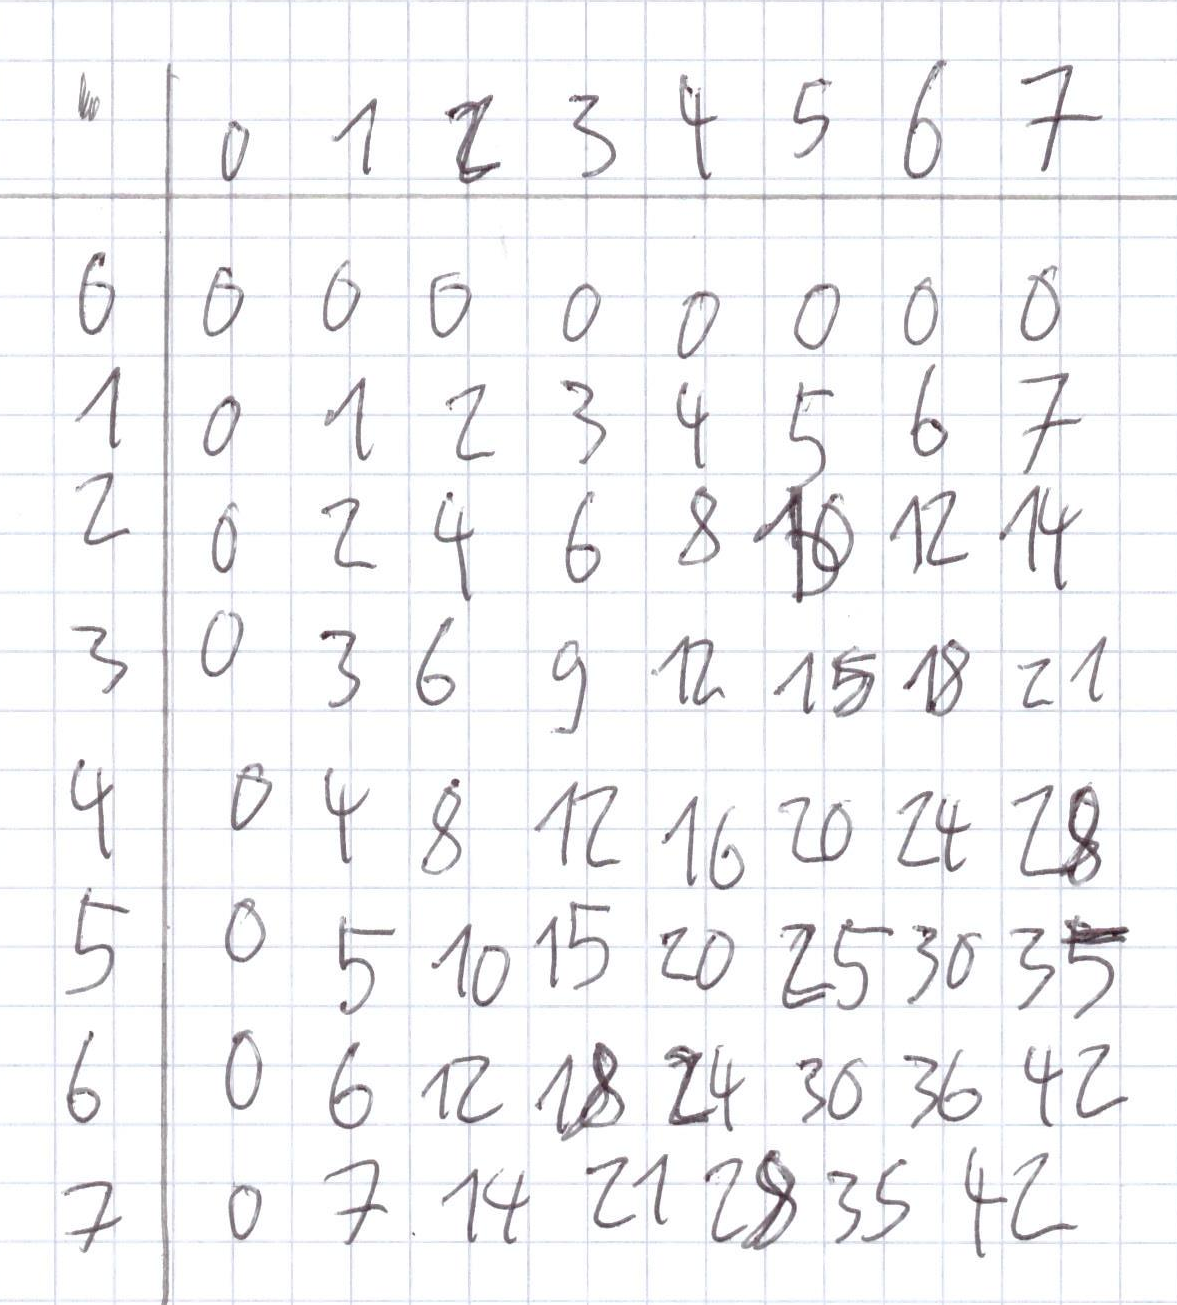 0 1 2 3 4 5 6 7
0 0 0 0 0 0 0 0 0
1 0 1 2 3 4 5 6 7
2 0 2 4 6 8 10 12 14
3 0 3 6 9 12 15 18 21
4 0 4 8 12 16 20 24 28
5 0 5 10 15 20 25 30 35
6 0 6 12 18 24 30 36 42
7 0 7 14 21 28 35 42